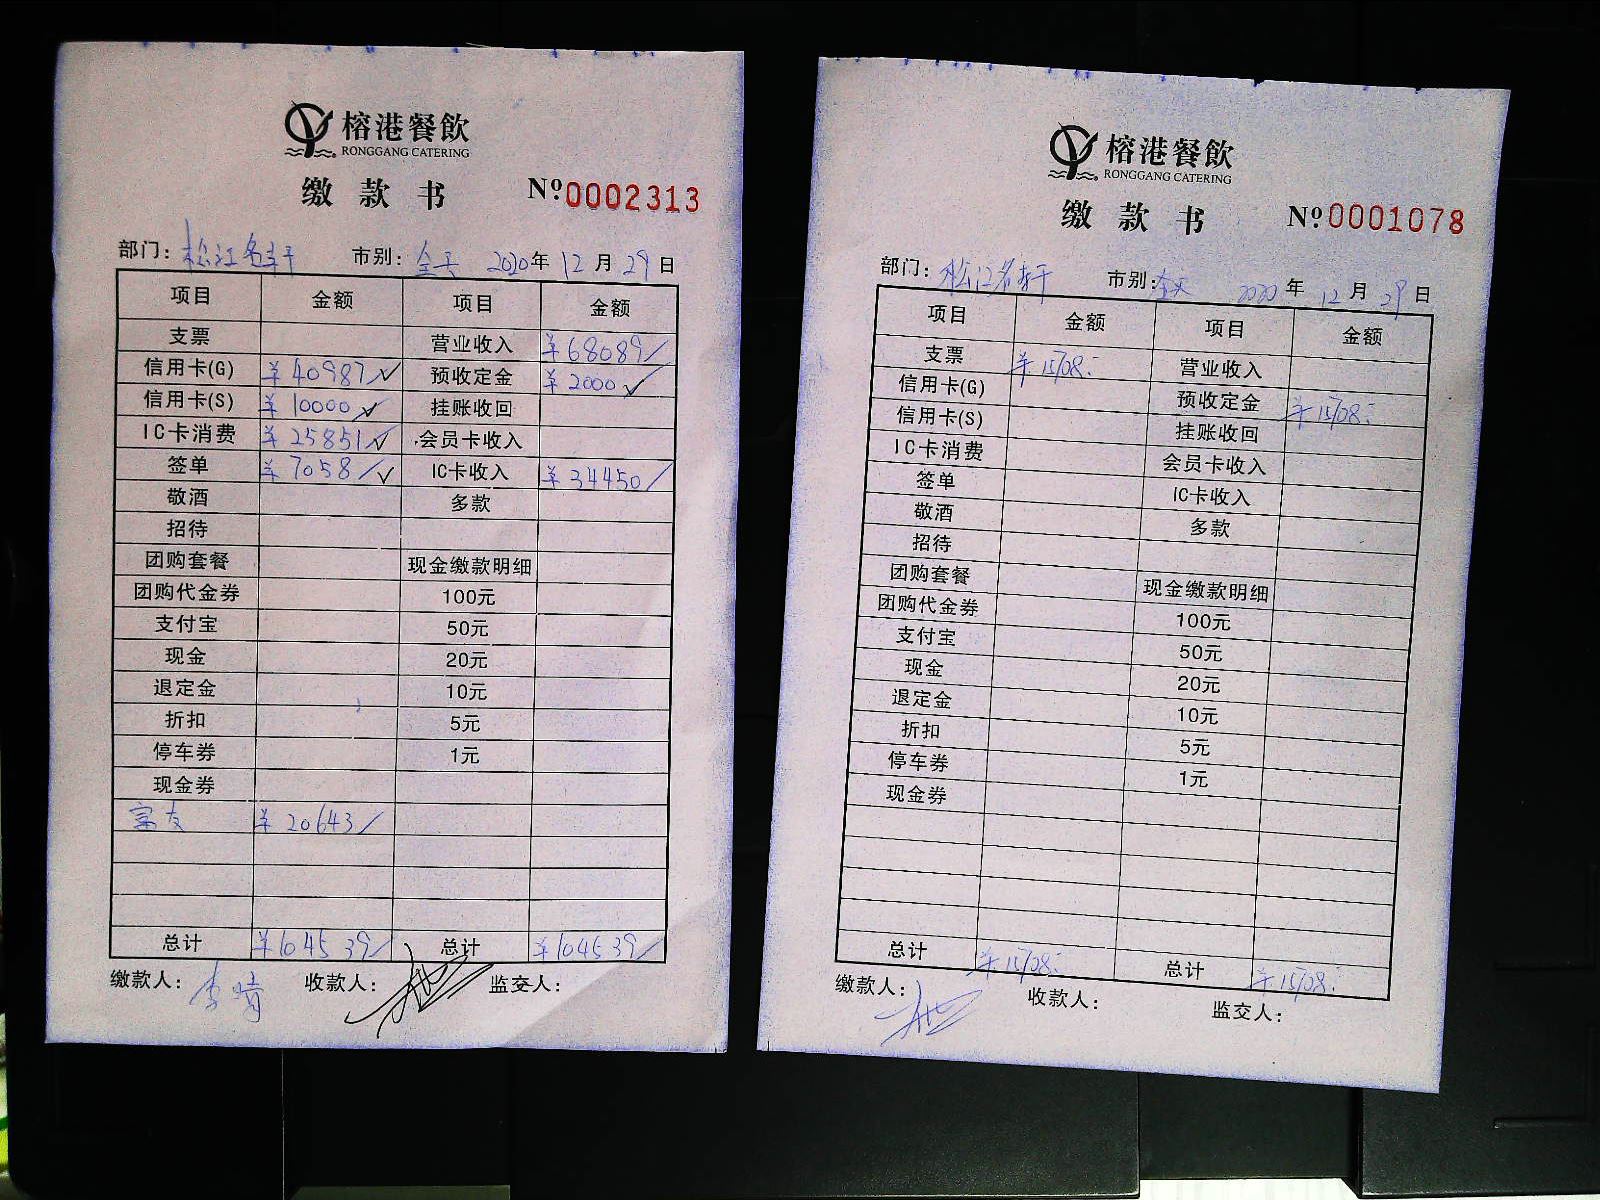 榕港餐飲
RONGGANG CATERING
缴款书 Nº0002313
部门: 松江名轩 市别: 全天 2020年12月29日
项目 金额 项目 金额
支票 营业收入 ¥68089/
信用卡(G) ¥40987✓ 预收定金 ¥2000✓
信用卡(S) ¥10000✓ 挂账收回
IC卡消费 ¥25851✓ 会员卡收入
签单 ¥7058/✓ IC卡收入 ¥34450/
敬酒 多款
招待
团购套餐 现金缴款明细
团购代金券 100元
支付宝 50元
现金 20元
退定金 10元
折扣 5元
停车券 1元
现金券
¥20643/
总计 ¥104539/ 总计 ¥104539/
缴款人: 李 收款人: 监交人:
榕港餐飲
RONGGANG CATERING
缴款书 Nº0001078
部门: 松江名轩 市别: 全天 2020年12月29日
项目 金额 项目 金额
支票 ¥15108 营业收入
信用卡(G) 预收定金 ¥15108
信用卡(S) 挂账收回
IC卡消费 会员卡收入
签单 IC卡收入
敬酒 多款
招待
团购套餐 现金缴款明细
团购代金券 100元
支付宝 50元
现金 20元
退定金 10元
折扣 5元
停车券 1元
现金券
总计 ¥15108 总计 ¥15108
缴款人: 收款人: 监交人: